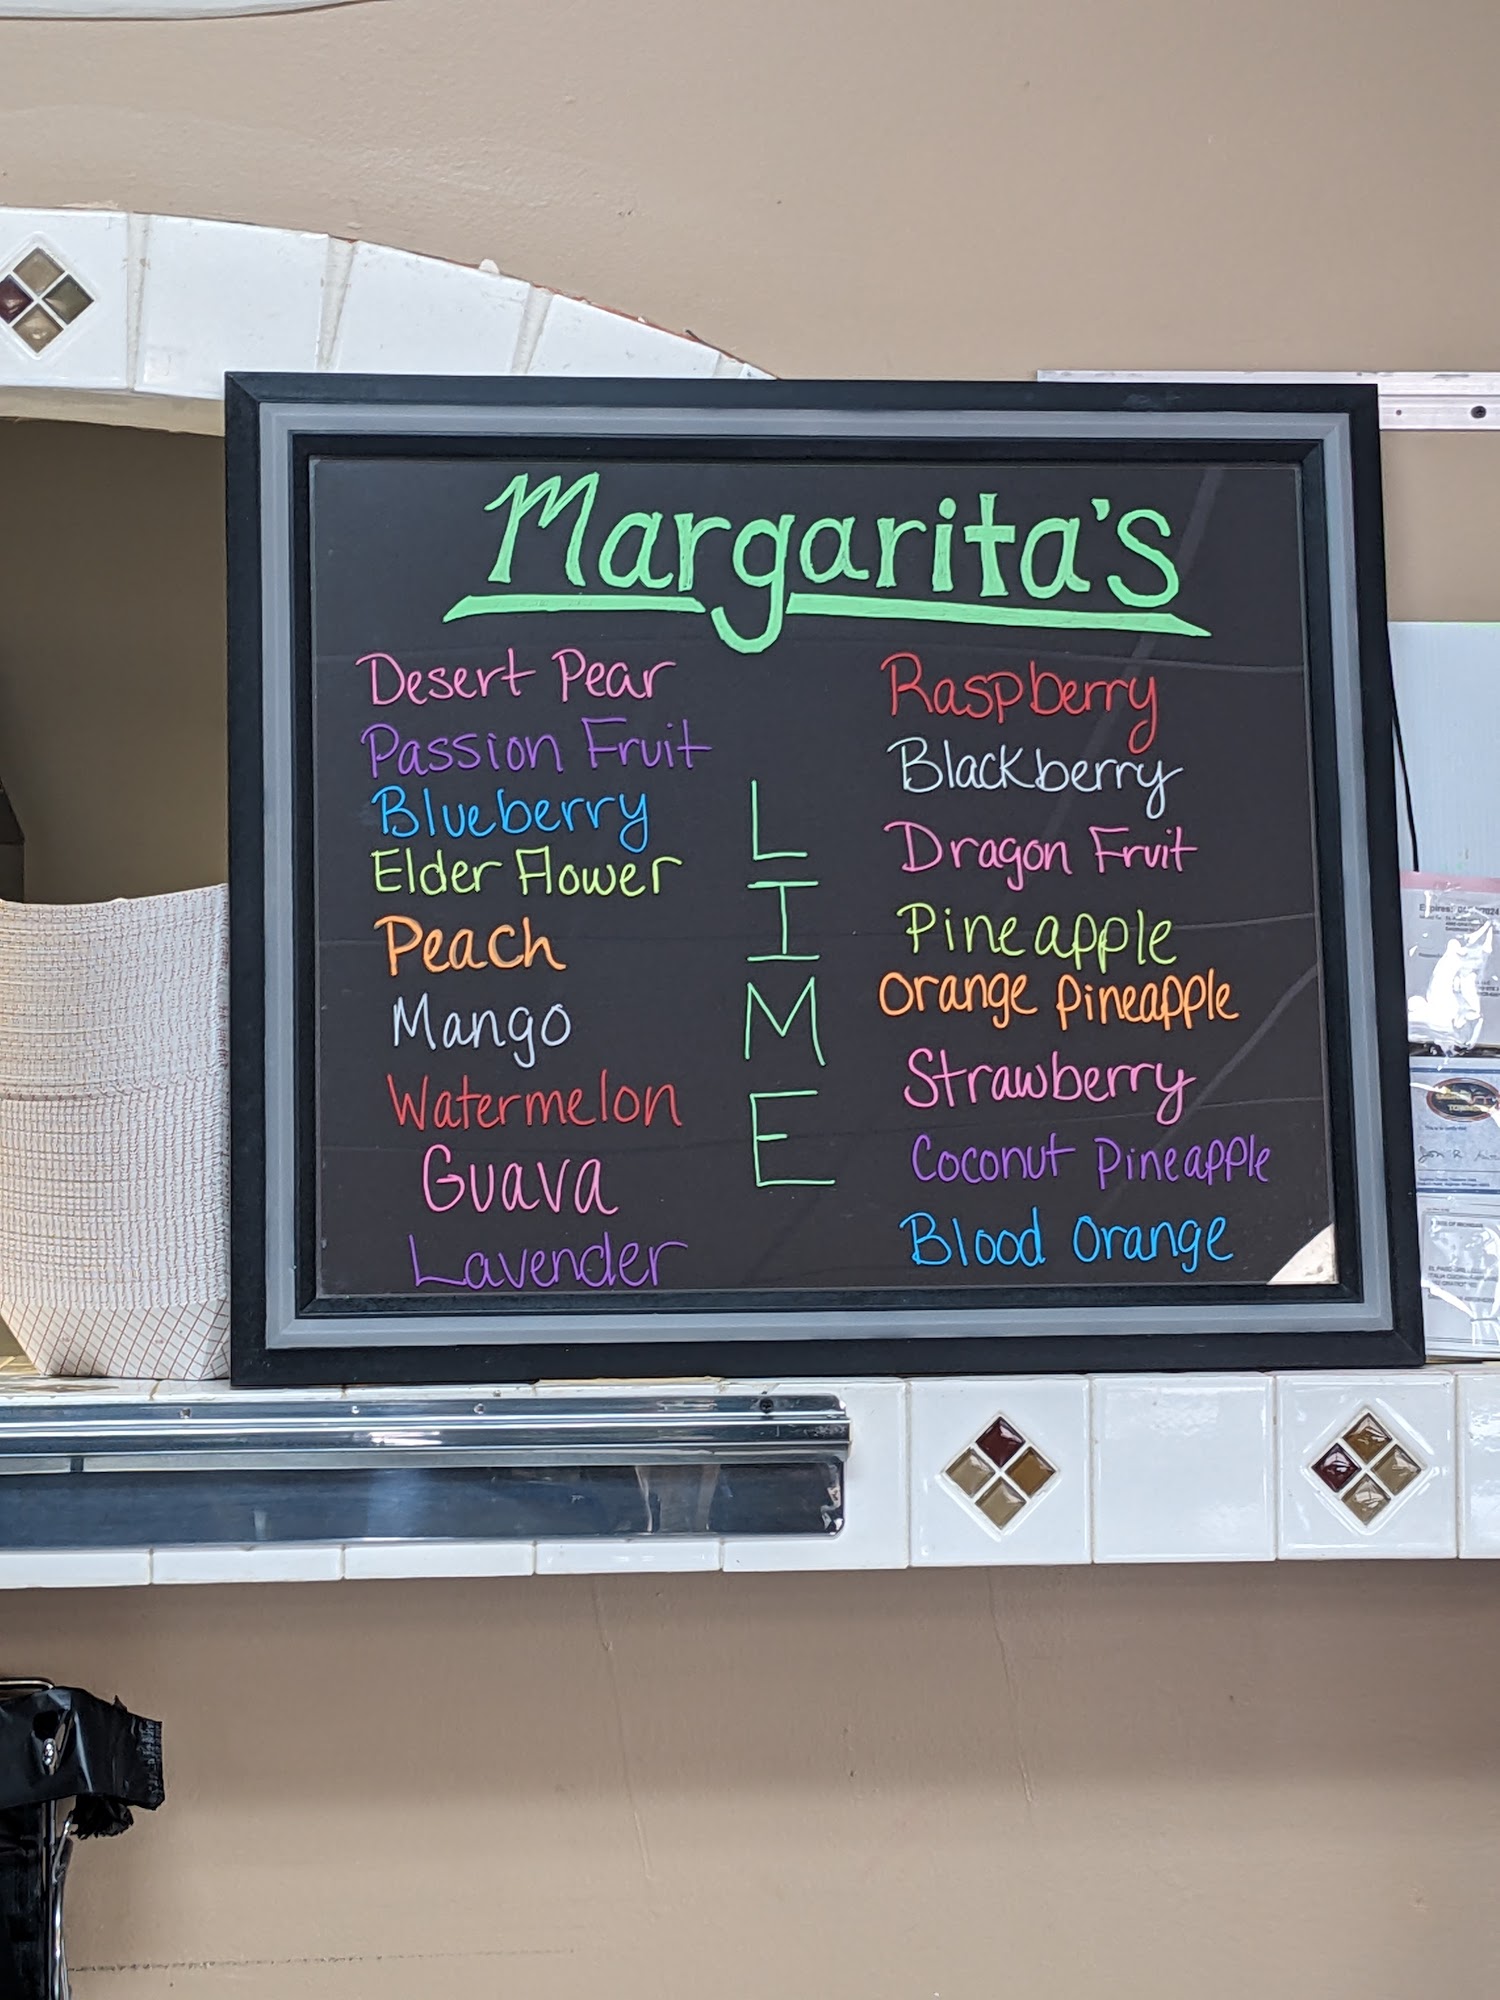 Margarita's
Desert Pear
Passion Fruit
Blueberry
Elder Flower
Peach
Mango
Watermelon
Guava
Lavender
LIME
Raspberry
Blackberry
Dragon Fruit
Pineapple
Orange Pineapple
Strawberry
Coconut Pineapple
Blood Orange
Expires: